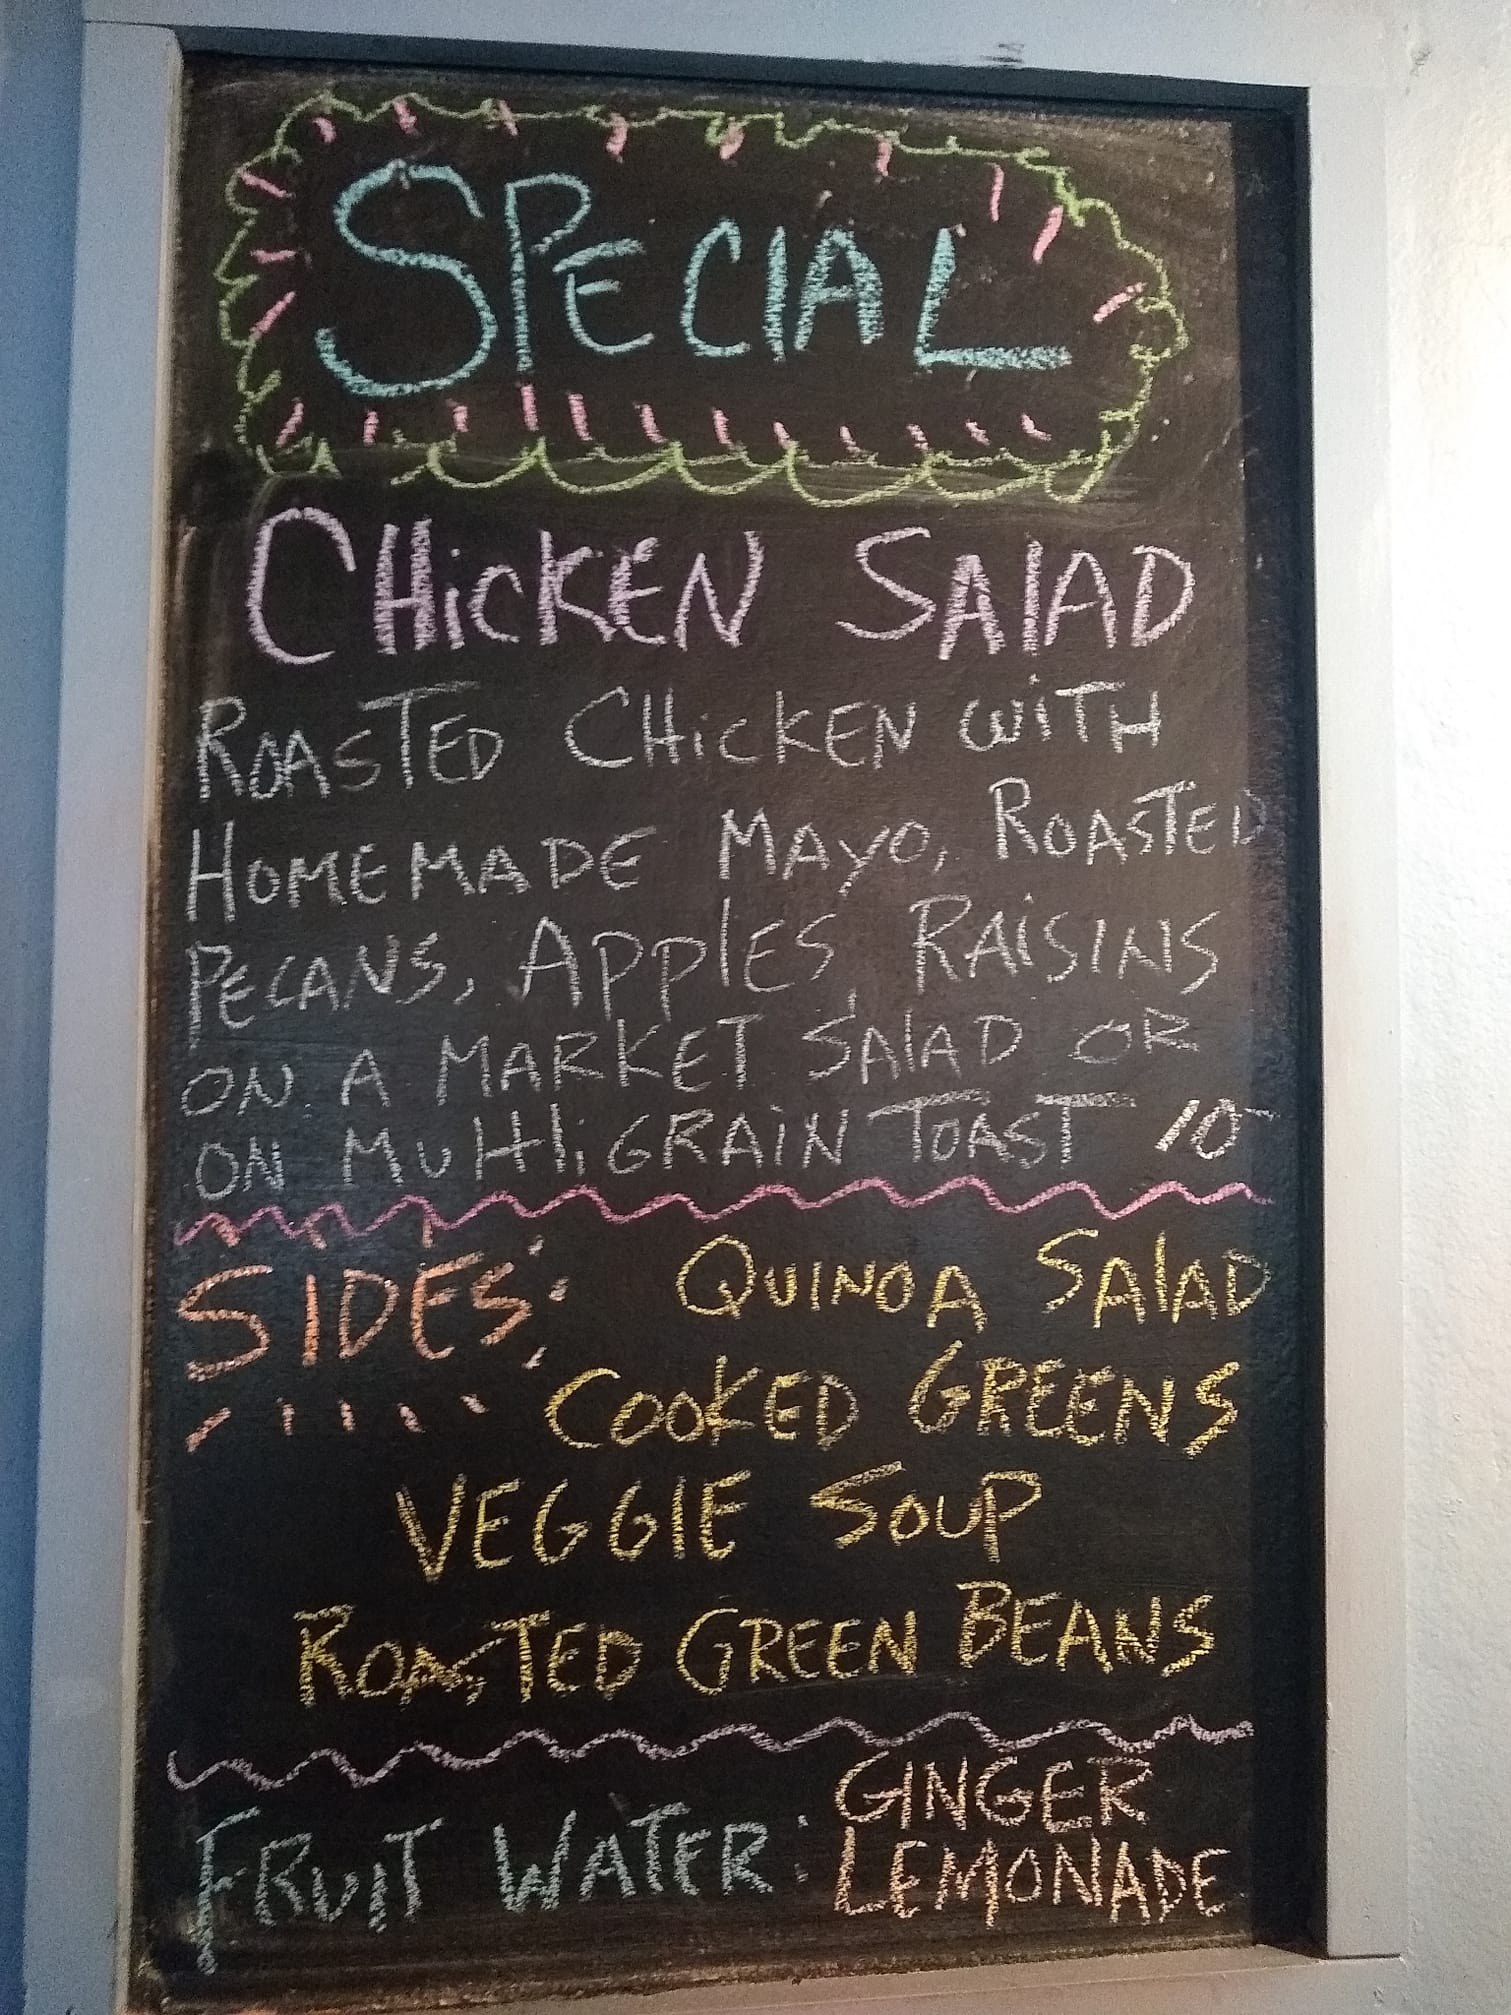 SPECIAL
CHiCKEN SAlAD
ROASTED CHiCKEN WiTH
HOMEMADE MAYO, ROASTED
PECANS, APPlES, RAiSINS
ON A MARKET SAlAD OR
ON MUlTiGRAiN TOAST 10-
SIDES: QUINOA SAlAD
COOKED GREENS
VEGGIE SOUP
ROASTED GREEN BEANS
FRUIT WATER: GINGER
LEMONADE